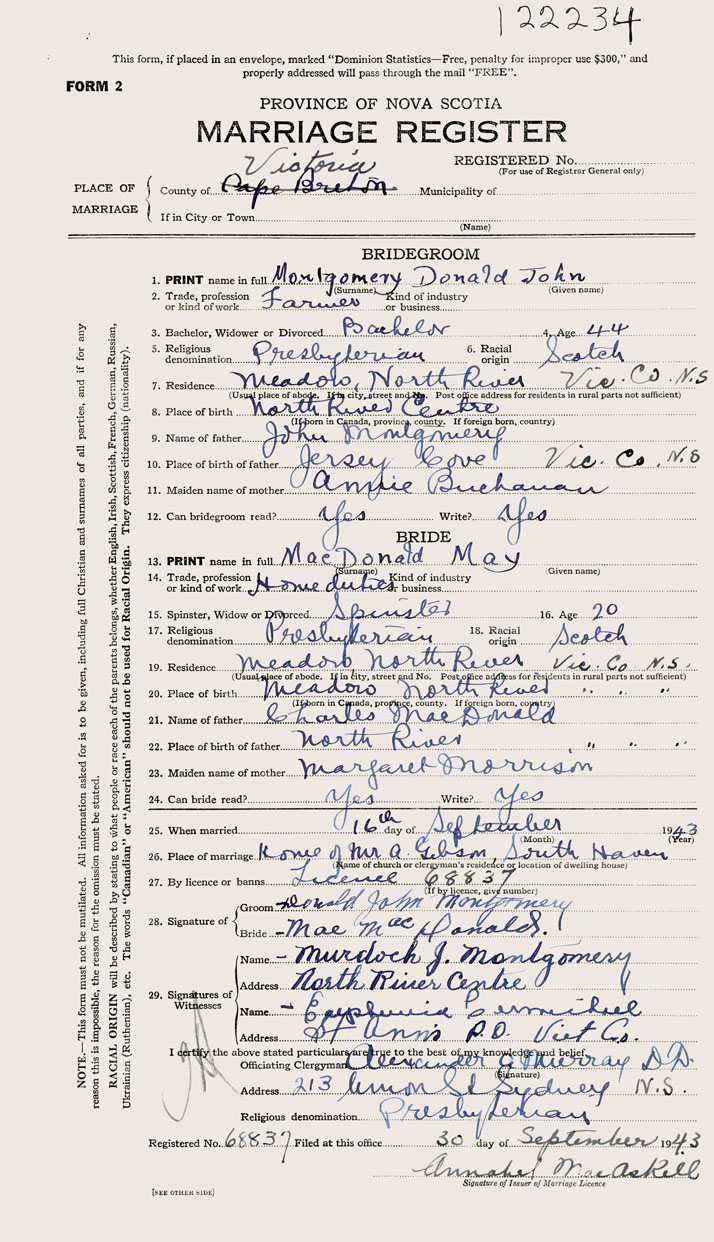 122234
This form, if placed in an envelope, marked "Dominion Statistics—Free, penalty for improper use $300," and
properly addressed will pass through the mail "FREE".
FORM 2
PROVINCE OF NOVA SCOTIA
MARRIAGE REGISTER
Victoria
REGISTERED No.
(For use of Registrar General only)
PLACE OF MARRIAGE
County of Cape Breton Municipality of
If in City or Town
(Name)
BRIDEGROOM
1. PRINT name in full Montgomery Donald John
(Surname) (Given name)
2. Trade, profession or kind of work Farmer Kind of industry or business
3. Bachelor, Widower or Divorced Bachelor 4. Age 44
5. Religious denomination Presbyterian 6. Racial origin Scotch
7. Residence Meadow, North River Vic. Co. N.S
(Usual place of abode. If in city, street and No. Post office address for residents in rural parts not sufficient)
8. Place of birth North River Centre
(If born in Canada, province, county. If foreign born, country)
9. Name of father John Montgomery
10. Place of birth of father Jersey Cove Vic. Co. N.S
11. Maiden name of mother Annie Buchanan
12. Can bridegroom read? Yes Write? Yes
BRIDE
13. PRINT name in full MacDonald May
(Surname) (Given name)
14. Trade, profession or kind of work Home duties Kind of industry or business
15. Spinster, Widow or Divorced Spinster 16. Age 20
17. Religious denomination Presbyterian 18. Racial origin Scotch
19. Residence Meadow, North River Vic. Co N.S.
(Usual place of abode. If in city, street and No. Post office address for residents in rural parts not sufficient)
20. Place of birth Meadow North River " " "
(If born in Canada, province, county. If foreign born, country)
21. Name of father Charles MacDonald
22. Place of birth of father North River " " "
23. Maiden name of mother Margaret Morrison
24. Can bride read? Yes Write? Yes
25. When married 16th day of September 1943
(Month) (Year)
26. Place of marriage Home of Mr A. Gibson, South Haven
(Name of church or clergyman's residence or location of dwelling house)
27. By licence or banns Licence 68837
(If by licence, give number)
28. Signature of
Groom Donald John Montgomery
Bride Mae MacDonald.
29. Signatures of Witnesses
Name Murdoch J. Montgomery
Address North River Centre
Name Euphemia
Address St Ann's P.O. Vict Co.
I certify the above stated particulars are true to the best of my knowledge and belief.
Officiating Clergyman Alexander Murray D.D.
(Signature)
Address 213 Union St Sydney N.S.
Religious denomination Presbyterian
Registered No. 68837 Filed at this office 30 day of September 1943
Annabel MacAskill
Signature of Issuer of Marriage Licence
[SEE OTHER SIDE]
NOTE.—This form must not be mutilated. All information asked for is to be given, including full Christian and surnames of all parties, and if for any
reason this is impossible, the reason for the omission must be stated.
RACIAL ORIGIN will be described by stating to what people or race each of the parents belongs, whether English, Irish, Scottish, French, German, Russian,
Ukrainian (Ruthenian), etc. The words "Canadian" or "American" should not be used for Racial Origin. They express citizenship (nationality).